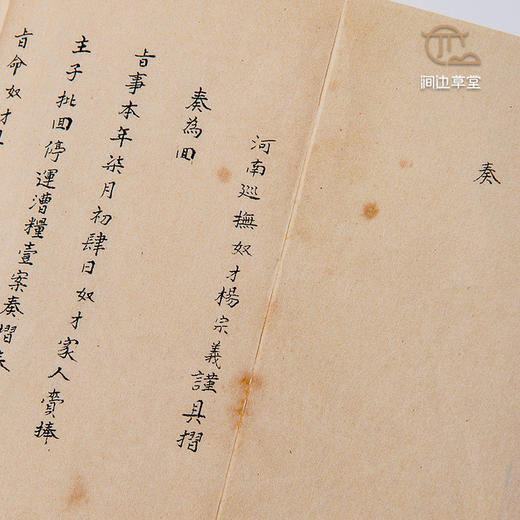 奏
河南巡撫奴才楊宗義謹具摺
奏為回
旨事本年柒月初肆日奴才家人賫捧
主子批回停運漕糧壹案奏摺
旨命奴才
间边草堂